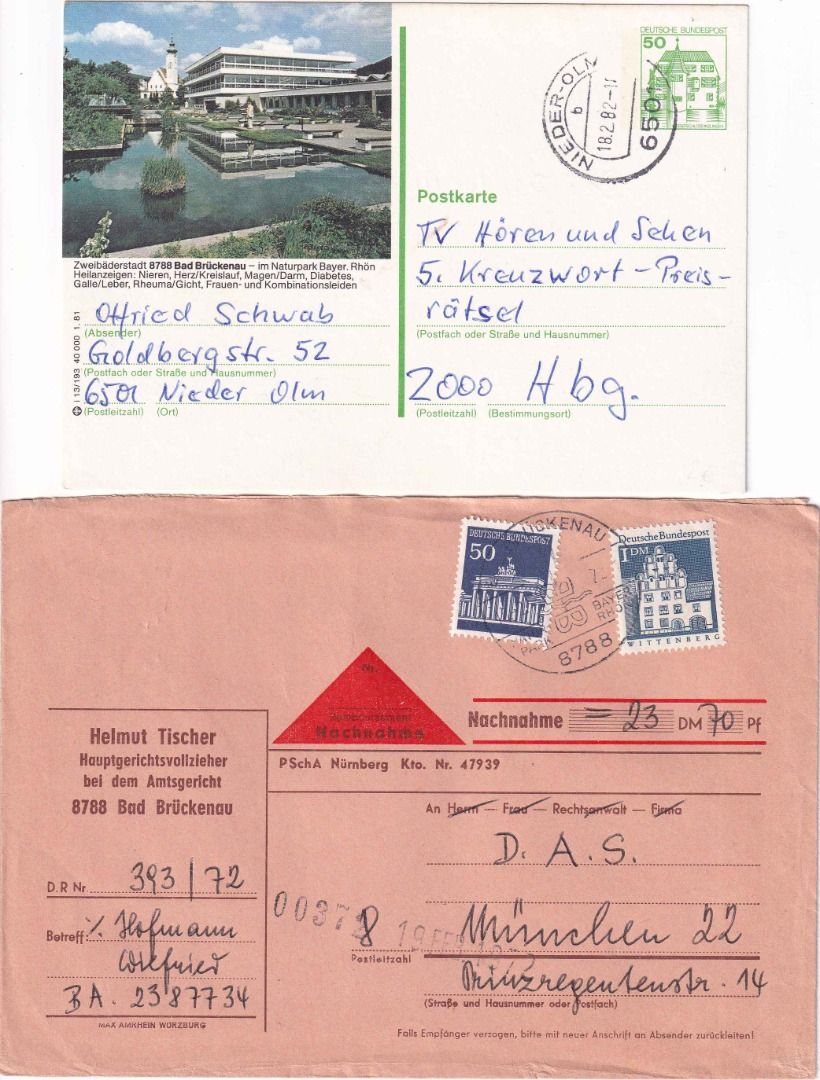 DEUTSCHE BUNDESPOST
50
NIEDER-OLM
b
18.2.82-11
6501
Postkarte
Zweibäderstadt 8788 Bad Brückenau – im Naturpark Bayer. Rhön
Heilanzeigen: Nieren, Herz/Kreislauf, Magen/Darm, Diabetes,
Galle/Leber, Rheuma/Gicht, Frauen- und Kombinationsleiden
TV Hören und Sehen
5. Kreuzwort-Preis-
rätsel
(Postfach oder Straße und Hausnummer)
2000 Hbg.
(Postleitzahl) (Bestimmungsort)
Otfried Schwab
(Absender)
Goldbergstr. 52
(Postfach oder Straße und Hausnummer)
6501 Nieder Olm
(Postleitzahl) (Ort)
I 13/193 40 000 1.81
DEUTSCHE BUNDESPOST
50
Deutsche Bundespost
1 DM
WITTENBERG
ÜCKENAU
BAYER
RHÖN
PARK
8788
Nr.
Remboursement
Nachnahme
Nachnahme = 23 DM 70 Pf
Helmut Tischer
Hauptgerichtsvollzieher
bei dem Amtsgericht
8788 Bad Brückenau
PSchA Nürnberg Kto. Nr. 47939
An Herrn — Frau — Rechtsanwalt — Firma
D. A. S.
D.R Nr. 393/72
00372
Betreff: ./. Hofmann
Wilfried
BA. 2387734
8 München 22
Postleitzahl
Prinzregentenstr. 14
(Straße und Hausnummer oder Postfach)
MAX AMRHEIN WÜRZBURG
Falls Empfänger verzogen, bitte mit neuer Anschrift an Absender zurückleiten!